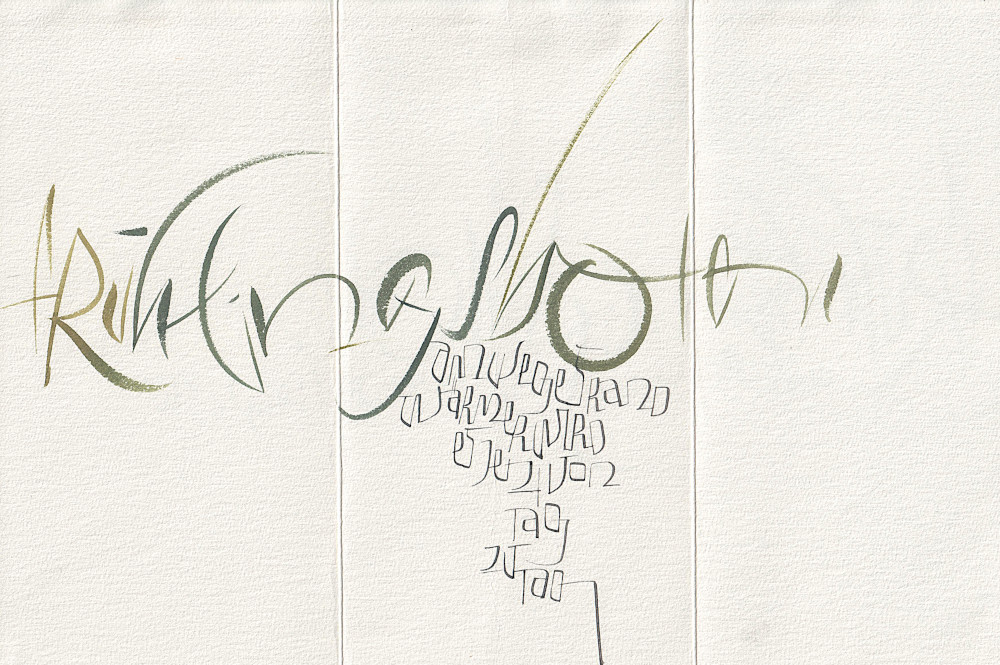 Frühlingsboten
am Wegesrand
wärmer wird
es jetzt von
Tag
zu Tag